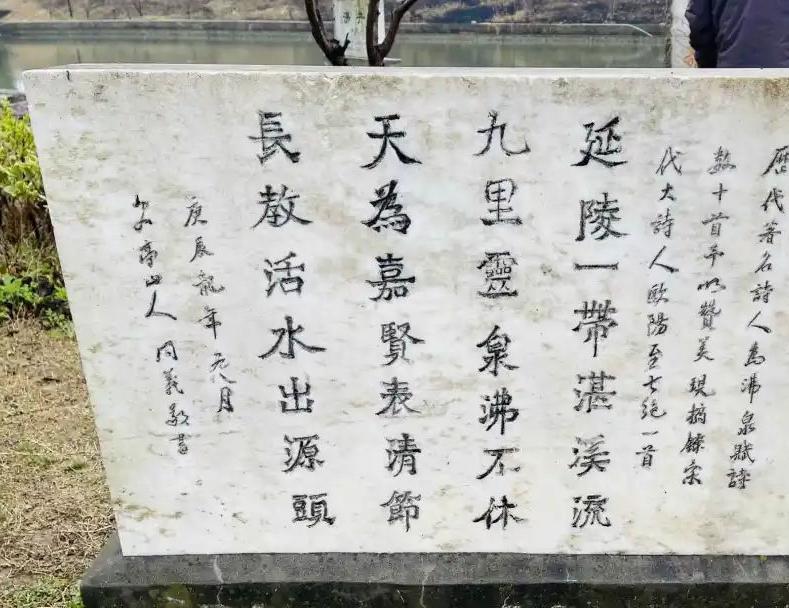 歷代著名詩人為沸泉賦詩
數十首予以贊美現摘錄宋
代大詩人歐陽至七绝一首
延陵一帶湛溪流
九里靈泉沸不休
天為嘉賢表清節
長教活水出源頭
庚辰龍年元月
山人同義敬書